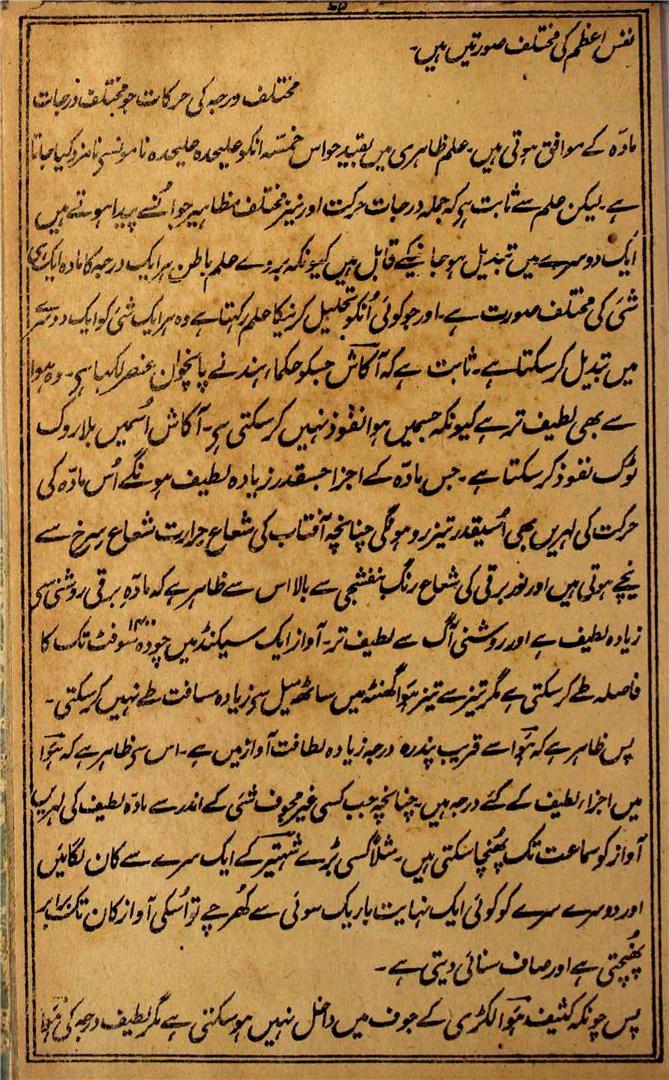 نفس اعظم کی مختلف صورتیں ہیں۔
مختلف درجہ کی حرکات جو مختلف درجات
مادّہ کے موافق ہوتی ہیں۔ علم ظاہری میں بقید حواس خمسّہ انکو علیحدہ علیحدہ ناموں سے نامزد کیا جاتا
ہے۔ لیکن علم سے ثابت ہے کہ جملہ درجات حرکت اور نیز مختلف مظاہیر جو اُنسے پیدا ہوتے ہیں
ایک دوسرے میں تبدیل ہو جانیکے قابل ہیں کیونکہ بروے علم باطن ہر ایک درجہ کا مادہ ایک ہی
شئ کی مختلف صورت ہے۔ اور جو کوئی اُنکو تحلیل کرنیکا علم رکہتا ہے وہ ہر ایک شئ کو ایک دوسرے
میں تبدیل کر سکتا ہے۔ ثابت ہے کہ آکاش جسکو حکماء ہند نے پانچوان عنصر لکہا ہی۔ وہ ہوا
سے بھی لطیف تر ہے کیونکہ جسمیں ہوا نفوذ نہیں کر سکتی ہی۔ آکاش اُسمیں بلا روک
ٹوک نفوذ کر سکتا ہے۔ جس مادّہ کے اجزا جسقدر زیادہ لطیف ہونگے اُس مادّہ کی
حرکت کی لہریں بھی اُسیقدر تیز رو ہونگی چنانچہ آفتاب کی شعاع حرارت شعاع سرخ سے
نیچے ہوتی ہیں اور نور برقی کی شعاع رنگ بنفشجی سے بالا اس سے ظاہر ہے کہ مادّہ برقی روشنی سی
زیادہ لطیف ہے اور روشنی آگ سے لطیف تر۔ آواز ایک سیکنڈ میں چودہ ۱۴۰۰ سو فٹ تک کا
فاصلہ طے کر سکتی ہے مگر تیز سے تیز ہَوا گھنٹہ میں ساٹھ میل سی زیادہ مسافت طے نہیں کر سکتی۔
پس ظاہر ہے کہ ہَوا سے قریب پندرہ درجہ زیادہ لطافت آواز میں ہے۔ اس سی ظاہر ہے کہ ہَوا
میں اجزاء لطیف کے کئے درجہ ہیں۔ چنانچہ جب کسی غیر مجوف شئ کے اندر سے مادّہ لطیف کی لہریں
آواز کو سماعت تک پہُنچا سکتی ہیں۔ مثلاً کسی بڑے شہتیر کے ایک سرے سے کان لگائیں
اور دوسرے سرے کو کوئی ایک نہایت باریک سوئی سے کھُرچے تو اُسکی آواز کان تک برابر
پھُنچتی ہے اور صاف سنائی دیتی ہے۔
پس چونکہ کثیف ہَوا لکڑی کے جوف میں داخل نہیں ہو سکتی ہے مگر لطیف درجہ کی ہَوا